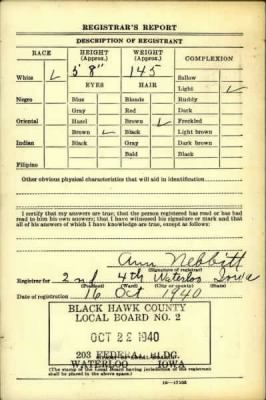 REGISTRAR'S REPORT
DESCRIPTION OF REGISTRANT
RACE HEIGHT (Approx.) WEIGHT (Approx.) COMPLEXION
5' 8" 145 Sallow
White Light
EYES HAIR
Negro Blue Blonde Ruddy
Gray Red Dark
Oriental Hazel Brown Freckled
Brown Black Light brown
Indian Black Gray Dark brown
Bald Black
Filipino
Other obvious physical characteristics that will aid in identification
I certify that my answers are true; that the person registered has read or has had
read to him his own answers; that I have witnessed his signature or mark and that
all of his answers of which I have knowledge are true, except as follows:
Ann Nebbitt
(Signature of registrar)
Registrar for 2nd 4th Waterloo Iowa
(Precinct) (Ward) (City or county) (State)
Date of registration 16 Oct 1940
BLACK HAWK COUNTY
LOCAL BOARD NO. 2
OCT 22 1940
203 FEDERAL BLDG.
WATERLOO IOWA
(The stamp of the Local Board having jurisdiction of the registrant
shall be placed in the above space.)